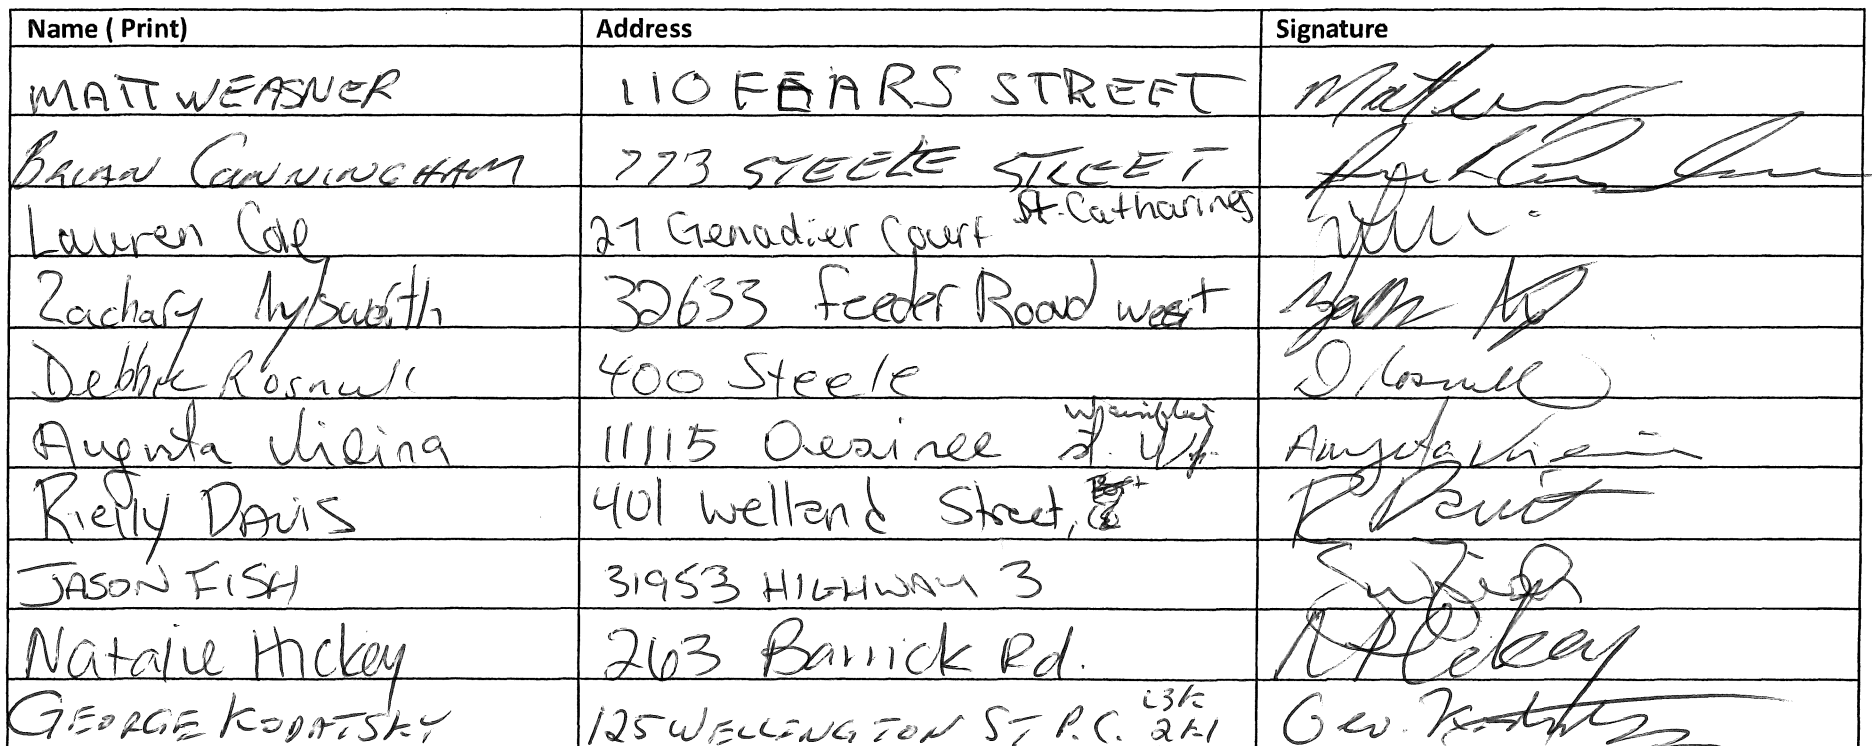 Name ( Print) Address Signature
MATT WEASNER 110 FEARS STREET
BRIAN CUNNINGHAM 773 STEELE STREET
Lauren Cole 27 Genadier Court St. Catharines
Zachary Aylsworth 32633 Feeder Road west
Debbie Rosnwll 400 Steele D Rosnwell
Augusta 11115 Desiree st.
Rielly DAVIS 401 Welland Street, R Davis
JASON FISH 31953 HIGHWAY 3
Natalie Hickey 263 Barrick Rd. N Hickey
GEORGE KODATSKY 125 WELLINGTON ST P.C. L3K 2K1 Geo.